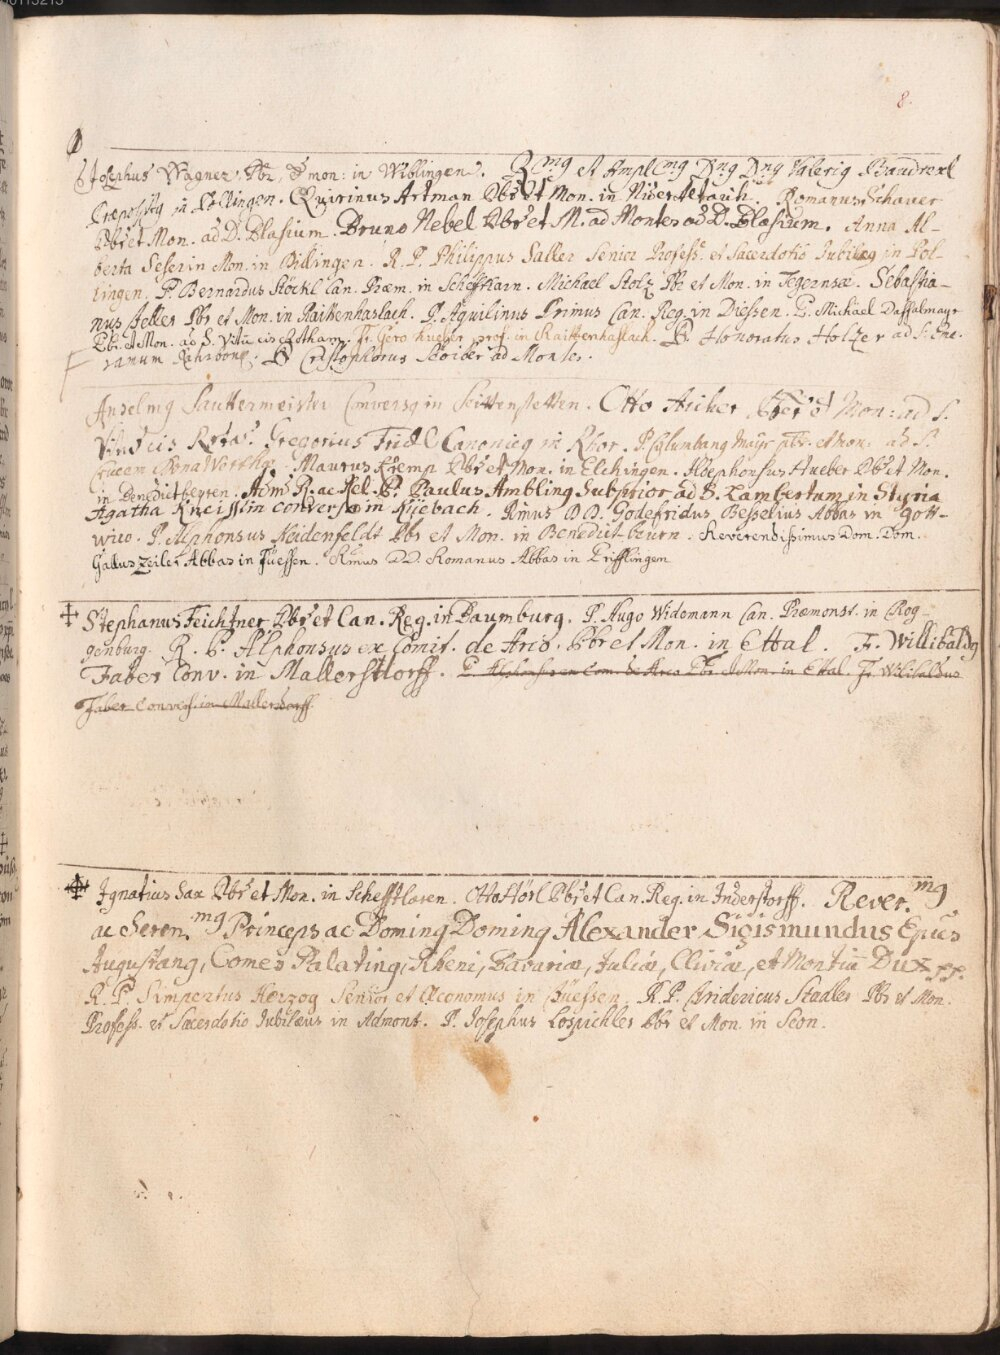 8.
Josephus Wagner Pbr. et mon: in Wiblingen. Rmg et Amplmg Dng Dng Valerig Brandrexl
Præpositg in Pollingen. Quirinus Artman Pbr et Mon. in Nideraltaich. Romanus Schauer
Pbr et Mon. ad D. Blasium. Bruno Nebel Pbr et M. ad Montes ad D. Blasium. Anna Al-
berta Seserin Mon. in Billingen. R. P. Philippus Saller Senior Profess. et Sacerdotio Jubilæg in Pol-
lingen. P. Bernardus Stöckl Can. Præm. in Schefftlarn. Michael Stolz Pbr et Mon. in Tegernseæ. Sebastia-
nus Zeller Pbr et Mon. in Raittenhaslach. P. Aquilinus Primus Can. Reg. in Diessen. P. Michael Daffalmayr
Pbr. et Mon. ad S. Vitum cis Rotham. Fr. Gero Hueber prof. in Raittenhaslach. P. Honoratus Holzer ad S. Eme-
ranum Ratisbonæ. P. Cristophorus Schreier ad Montes.
Anselmg Sauttermeister Conversg in Scittenstetten. Otto Aicher Pbr et Mon: ad S.
Vitum cis Rotam. Gregorius Fridl Canonicg in Rhor. P. Columbang Mayr pbr. et mon: ad S.
Crucem Donawerthæ. Maurus Kremp Pbr et Mon. in Elchingen. Aldephonsus Hueber Pbr et Mon.
in Benedictbeyren. Adm R. ac Rel. P. Paulus Ambling Subprior ad S. Lambertum in Styria
Agatha Kneisslin conversa in Küebach. Rmus D D. Godefridus Besselius Abbas in Gott-
wico. P. Alphonsus Heidenfeldt Pbr et Mon. in Benedict-beurn. Reverendissimus Dom. Dom.
Gallus Zeiler Abbas in Füessen. Rmus DD. Romanus Abbas in Prifflingen
Stephanus Feichtner Pbr et Can. Reg. in Baumburg. P. Hugo Widemann Can. Præmonst. in Rog-
genburg. R. P. Alphonsus ex Comit. de Arco. Pbr et Mon. in Ettal. Fr. Willibaldg
Faber Conv. in Mallerstorff. P. Alphonsus ex Com. de Arco Pbr et Mon. in Ettal. Fr. Wilibaldus
Faber Convers. in Mallersdorff.
Ignatius Sax Pbr et Mon. in Schefftlaren. Otto Hörl Pbr et Can. Reg. in Inderstorff. Rever.mg
ac Seren.mg Princeps ac Doming Doming Alexander Sigismundus Epus
Augustang, Comes Palating, Rheni, Bavariæ, Juliæ, Cliviæ, et Montium Dux pp.
R. P. Simpertus Herzog Senior et Œconomus in Füessen. R. P. Fridericus Stadler Pbr et Mon.
Profess. et Sacerdotio Jubilæus in Admont. P. Josephus Lospichler Pbr et Mon. in Seon.